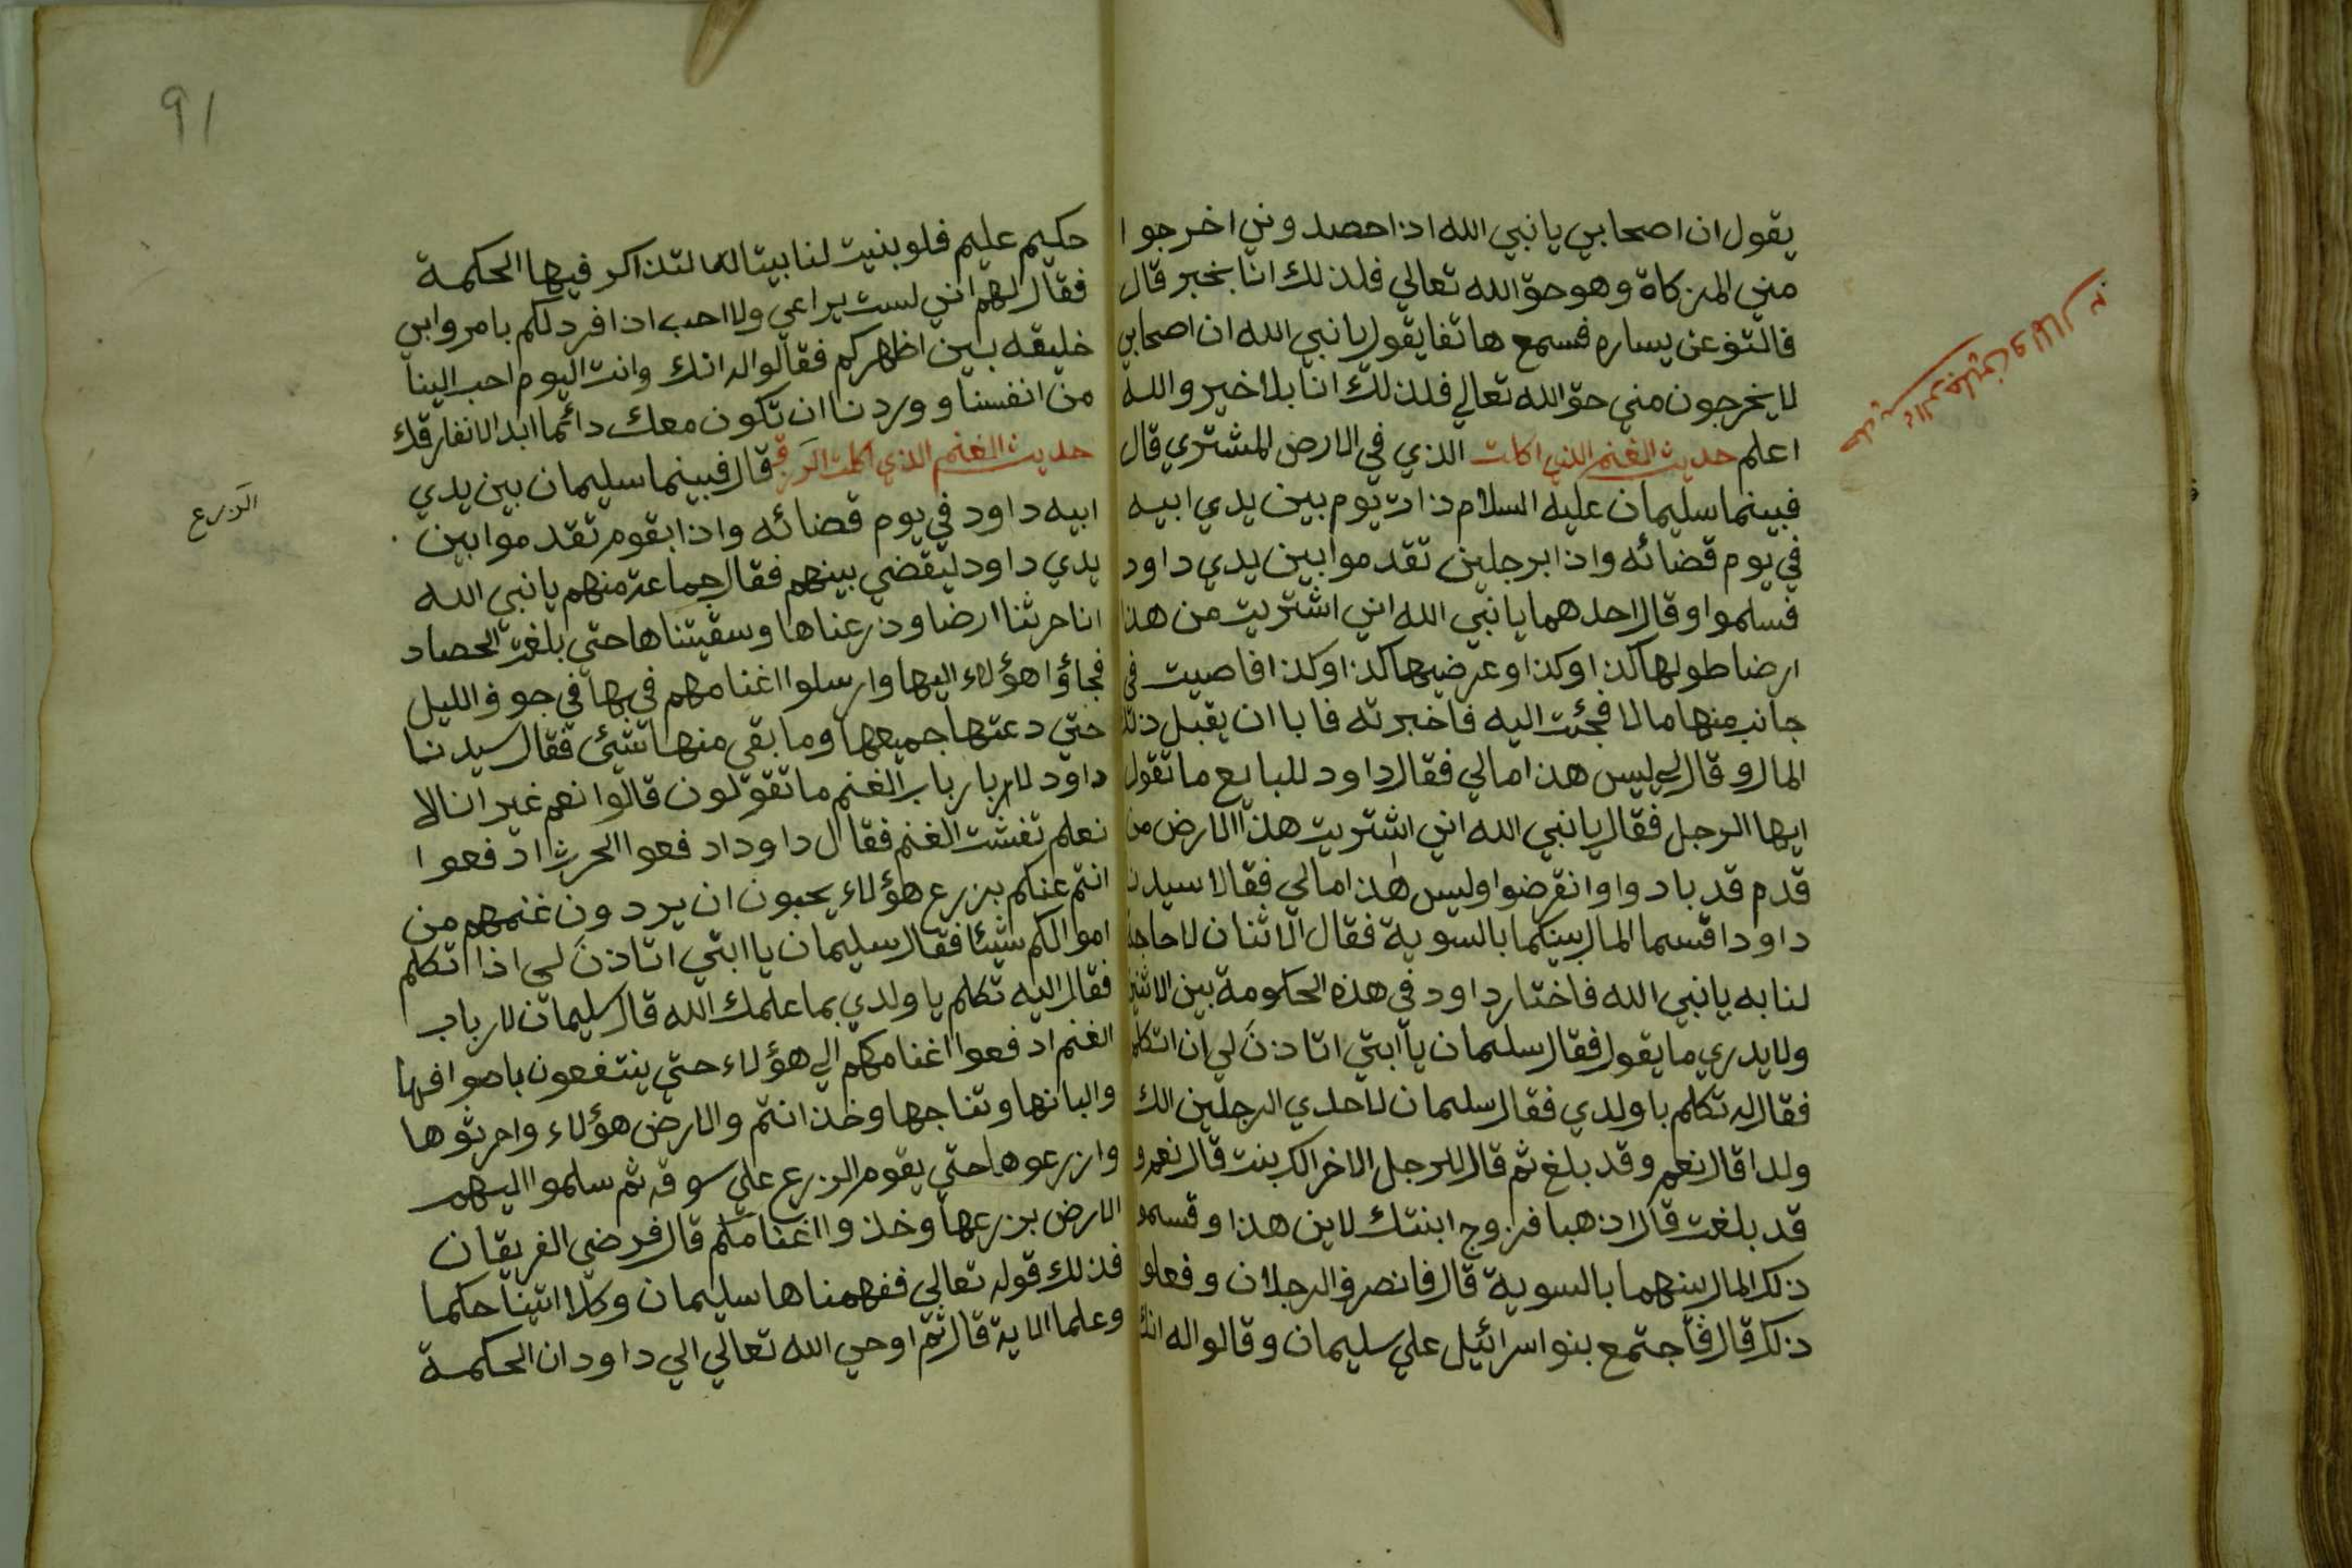 يقول ان اصحابي يا نبي الله اذا حصدوني اخرجوا
مني الزكاة وهو حق الله تعالي فلذلك انا بخير قال
فالتفت عن يساره فسمع هاتفا يقول يا نبي الله ان اصحابي
لا يخرجون مني حق الله تعالي فلذلك انا بلا خير والله
اعلم حديث الغنم الذي اكلت الذي في الارض المشتري قال
فبينما سليمان عليه السلام ذات يوم بين يدي ابيه
في يوم قضائه واذا برجلين تقدموا بين يدي داود
فسلموا وقال احدهما يا نبي الله اني اشتريت من هذا
ارضا طولها كذا وكذا وعرضيها كذا وكذا فاصيت في
جانب منها مالا فجئت اليه فاخبرته فابا ان يقبل ذلك
المال وقال لي ليس هذا مالي فقال داود للبايع ما تقول
ايها الرجل فقال يا نبي الله اني اشتريت هذا الارض من
قدم قد بادوا وانقرضوا وليس هذا مالي فقالا سيدنا
داود اقسما المال بينكما بالسوية فقال الاثنان لا حاجة
لنا به يا نبي الله فاختار داود في هذه الحكومة بين الاثنين
ولا يدري ما يقول فقال سليمان يا ابتي اتاذن لي ان اتكلم
فقال له تكلم يا ولدي فقال سليمان لاحدي الرجلين الك
ولدا قال نعم وقد بلغ ثم قال للرجل الاخر الك بنت قال نعم و
قد بلغت قال اذهبا فزوج ابنتك لابن هذا وقسموا
ذلك المال بينهما بالسوية قال فانصرف الرجلان وفعلوا
ذلك قال فاجتمع بنو اسرائيل علي سليمان وقالوا له انك
حديث الرجلين والمال
91
حكيم عليم فلو بنيت لنا بيتا لتذاكر فيها الحكمة
فقال لهم اني لست براعي ولا احب اذا فرد لكم بامر وابي
خليقه بين اظهركم فقالوا له انك وانت اليوم احب الينا
من انفسنا ووردنا ان تكون معك دائما ابدا لا نفارقك
حديث الغنم الذي اكلت الزرع قال فبينما سليمان بين يدي
ابيه داود في يوم قضائه واذا بقوم تقدموا بين
يدي داود ليقضي بينهم فقال جماعة منهم يا نبي الله
انا حرثنا ارضا وذرعناها وسقيتناها حتي بلغت الحصاد
فجاؤا هؤلاء اليها وارسلوا اغنامهم فيها في جوف الليل
حتي دعتها جميعها وما بقي منها شيئ فقال سيدنا
داود لارباب الغنم ما تقولون قالوا نعم غير انا لا
نعلم تفشت الغنم فقال داود ادفعوا الحرث ادفعوا
انتم عنكم بزرع هؤلاء يحبون ان يردون غنمهم من
اموالكم شيئا فقال سليمان يا ابتي اتاذن لي اذا اتكلم
فقال اليه تكلم يا ولدي بما علمك الله قال سليمان لارباب
الغنم ادفعوا اغنامكم الي هؤلاء حتي ينتفعون باصوافها
والبانها ونتاجها وخذ انتم والارض هؤلاء واحرثوها
وازرعوها حتي يقوم الزرع علي سوقه ثم سلموا اليهم
الارض بزرعها وخذوا اغنامكم قال فرضي الفريقان
فذلك قوله تعالي ففهمناها سليمان وكلا اتينا حكما
وعلما الاية قال ثم اوحي الله تعالي الي داود ان الحكمة
الزرع